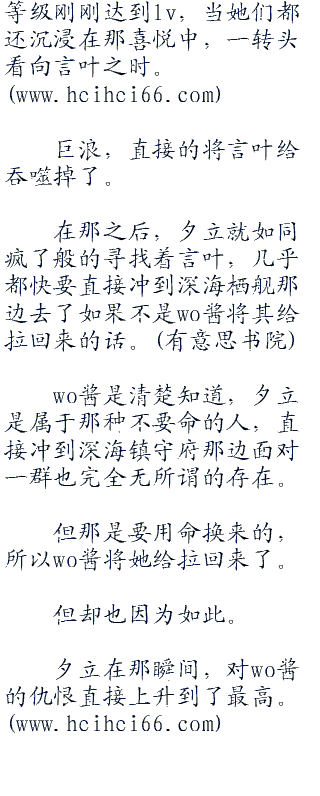 等级刚刚达到lv，当她们都
还沉浸在那喜悦中，一转头
看向言叶之时。
(www.hcihci66.com)
巨浪，直接的将言叶给
吞噬掉了。
在那之后，夕立就如同
疯了般的寻找着言叶，几乎
都快要直接冲到深海栖舰那
边去了如果不是wo酱将其给
拉回来的话。(有意思书院)
wo酱是清楚知道，夕立
是属于那种不要命的人，直
接冲到深海镇守府那边面对
一群也完全无所谓的存在。
但那是要用命换来的，
所以wo酱将她给拉回来了。
但却也因为如此。
夕立在那瞬间，对wo酱
的仇恨直接上升到了最高。
(www.hcihci66.com)